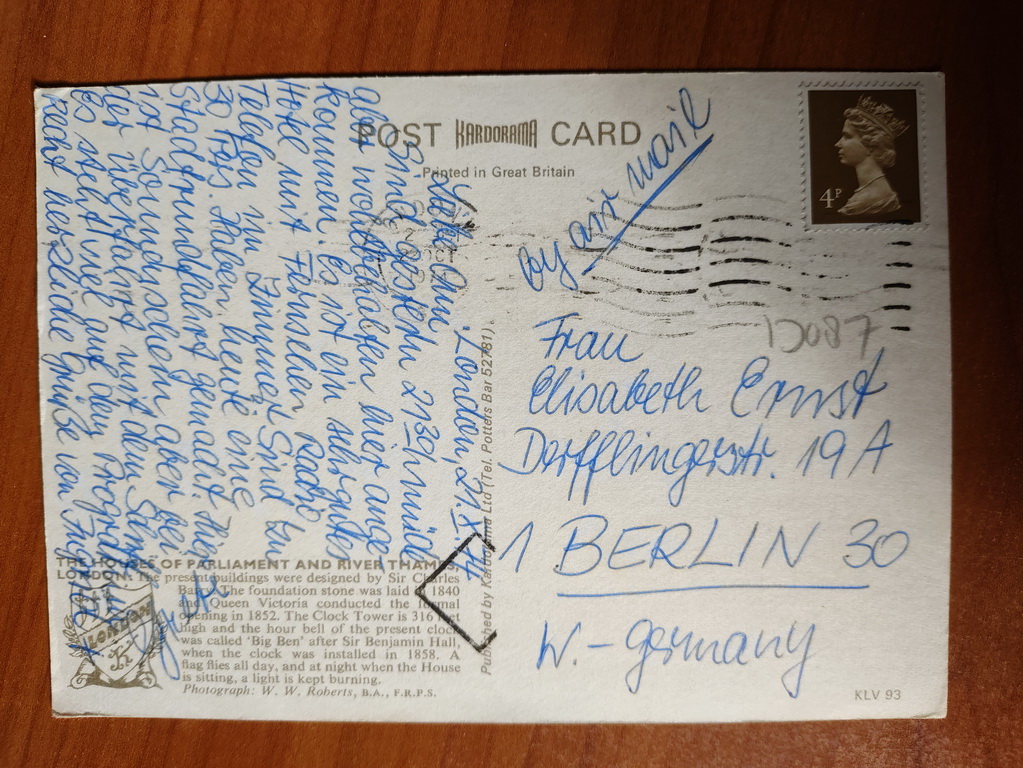 POST KARDORAMA CARD
Printed in Great Britain
4P
by air mail
13087
Frau
Elisabeth Ernst
Derfflingerstr. 19 A
1 BERLIN 30
W.-Germany
KLV 93
Published by Kardorama Ltd (Tel. Potters Bar 52781).
London,
sind gestern 2130 h
aber wohlbehalten hier ange
kommen. Es ist ein sehr gutes
Hotel mit Fernseher, Radio
Telefon im Zimmer. Sind bu
30 Pers. Haben heute eine
Stadtrundfahrt gemacht. Heu
ist Soundsoleh aber bei
der Überfahrt mit dem Schiff
Es steht viel auf dem Programm
Recht herzliche Grüße von
THE HOUSES OF PARLIAMENT AND RIVER THAMES,
LONDON. The present buildings were designed by Sir Charles
Barry. The foundation stone was laid in 1840
and Queen Victoria conducted the formal
opening in 1852. The Clock Tower is 316 feet
high and the hour bell of the present clock
was called 'Big Ben' after Sir Benjamin Hall,
when the clock was installed in 1858. A
flag flies all day, and at night when the House
is sitting, a light is kept burning.
Photograph: W. W. Roberts, B.A., F.R.P.S.
LONDON